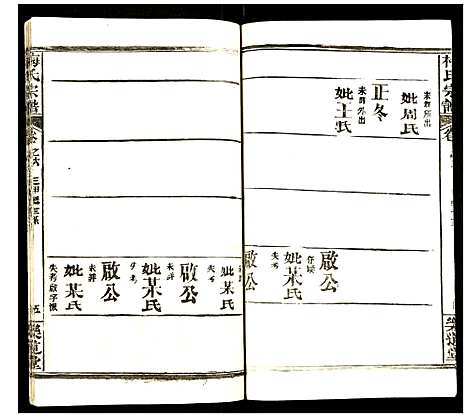 梅氏宗譜
妣周氏
未詳所出
正冬
妣王氏
未詳外出
啟公
妣某氏
失考
啟公
樂道堂
妣某氏
失考
啟公
未詳
妣某氏
失考
啟公
未詳
妣某氏
失考啟字派
梅氏宗譜
卷之六
五
樂道堂